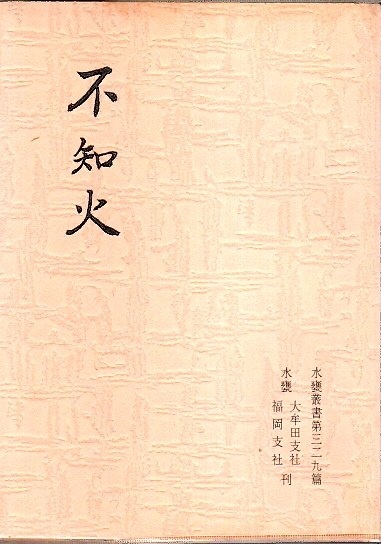 不知火
水甕叢書第三二九篇
水甕 大牟田支社
福岡支社 刊